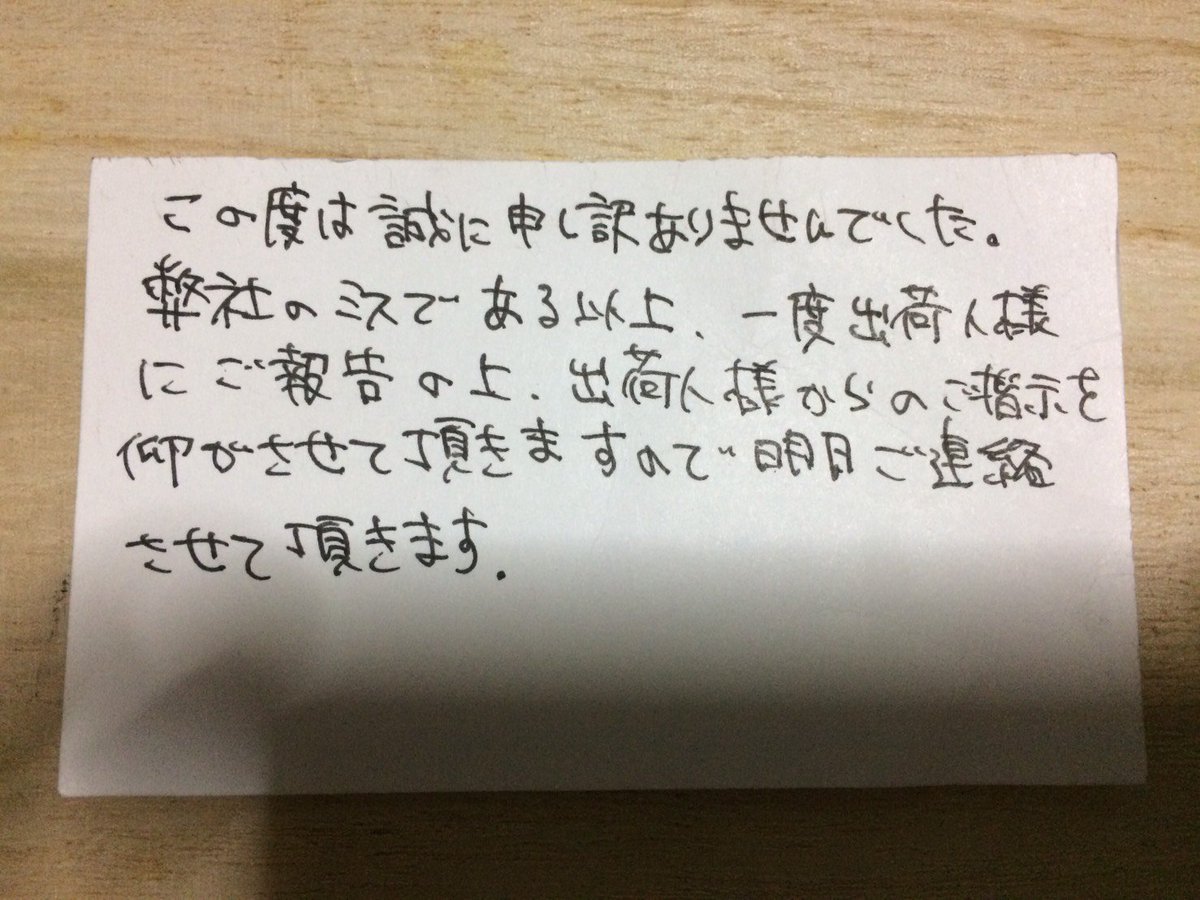 この度は誠に申し訳ありませんでした。
弊社のミスである以上、一度出荷人様
にご報告の上、出荷人様からのご指示を
仰がさせて頂きますので明日ご連絡
させて頂きます。